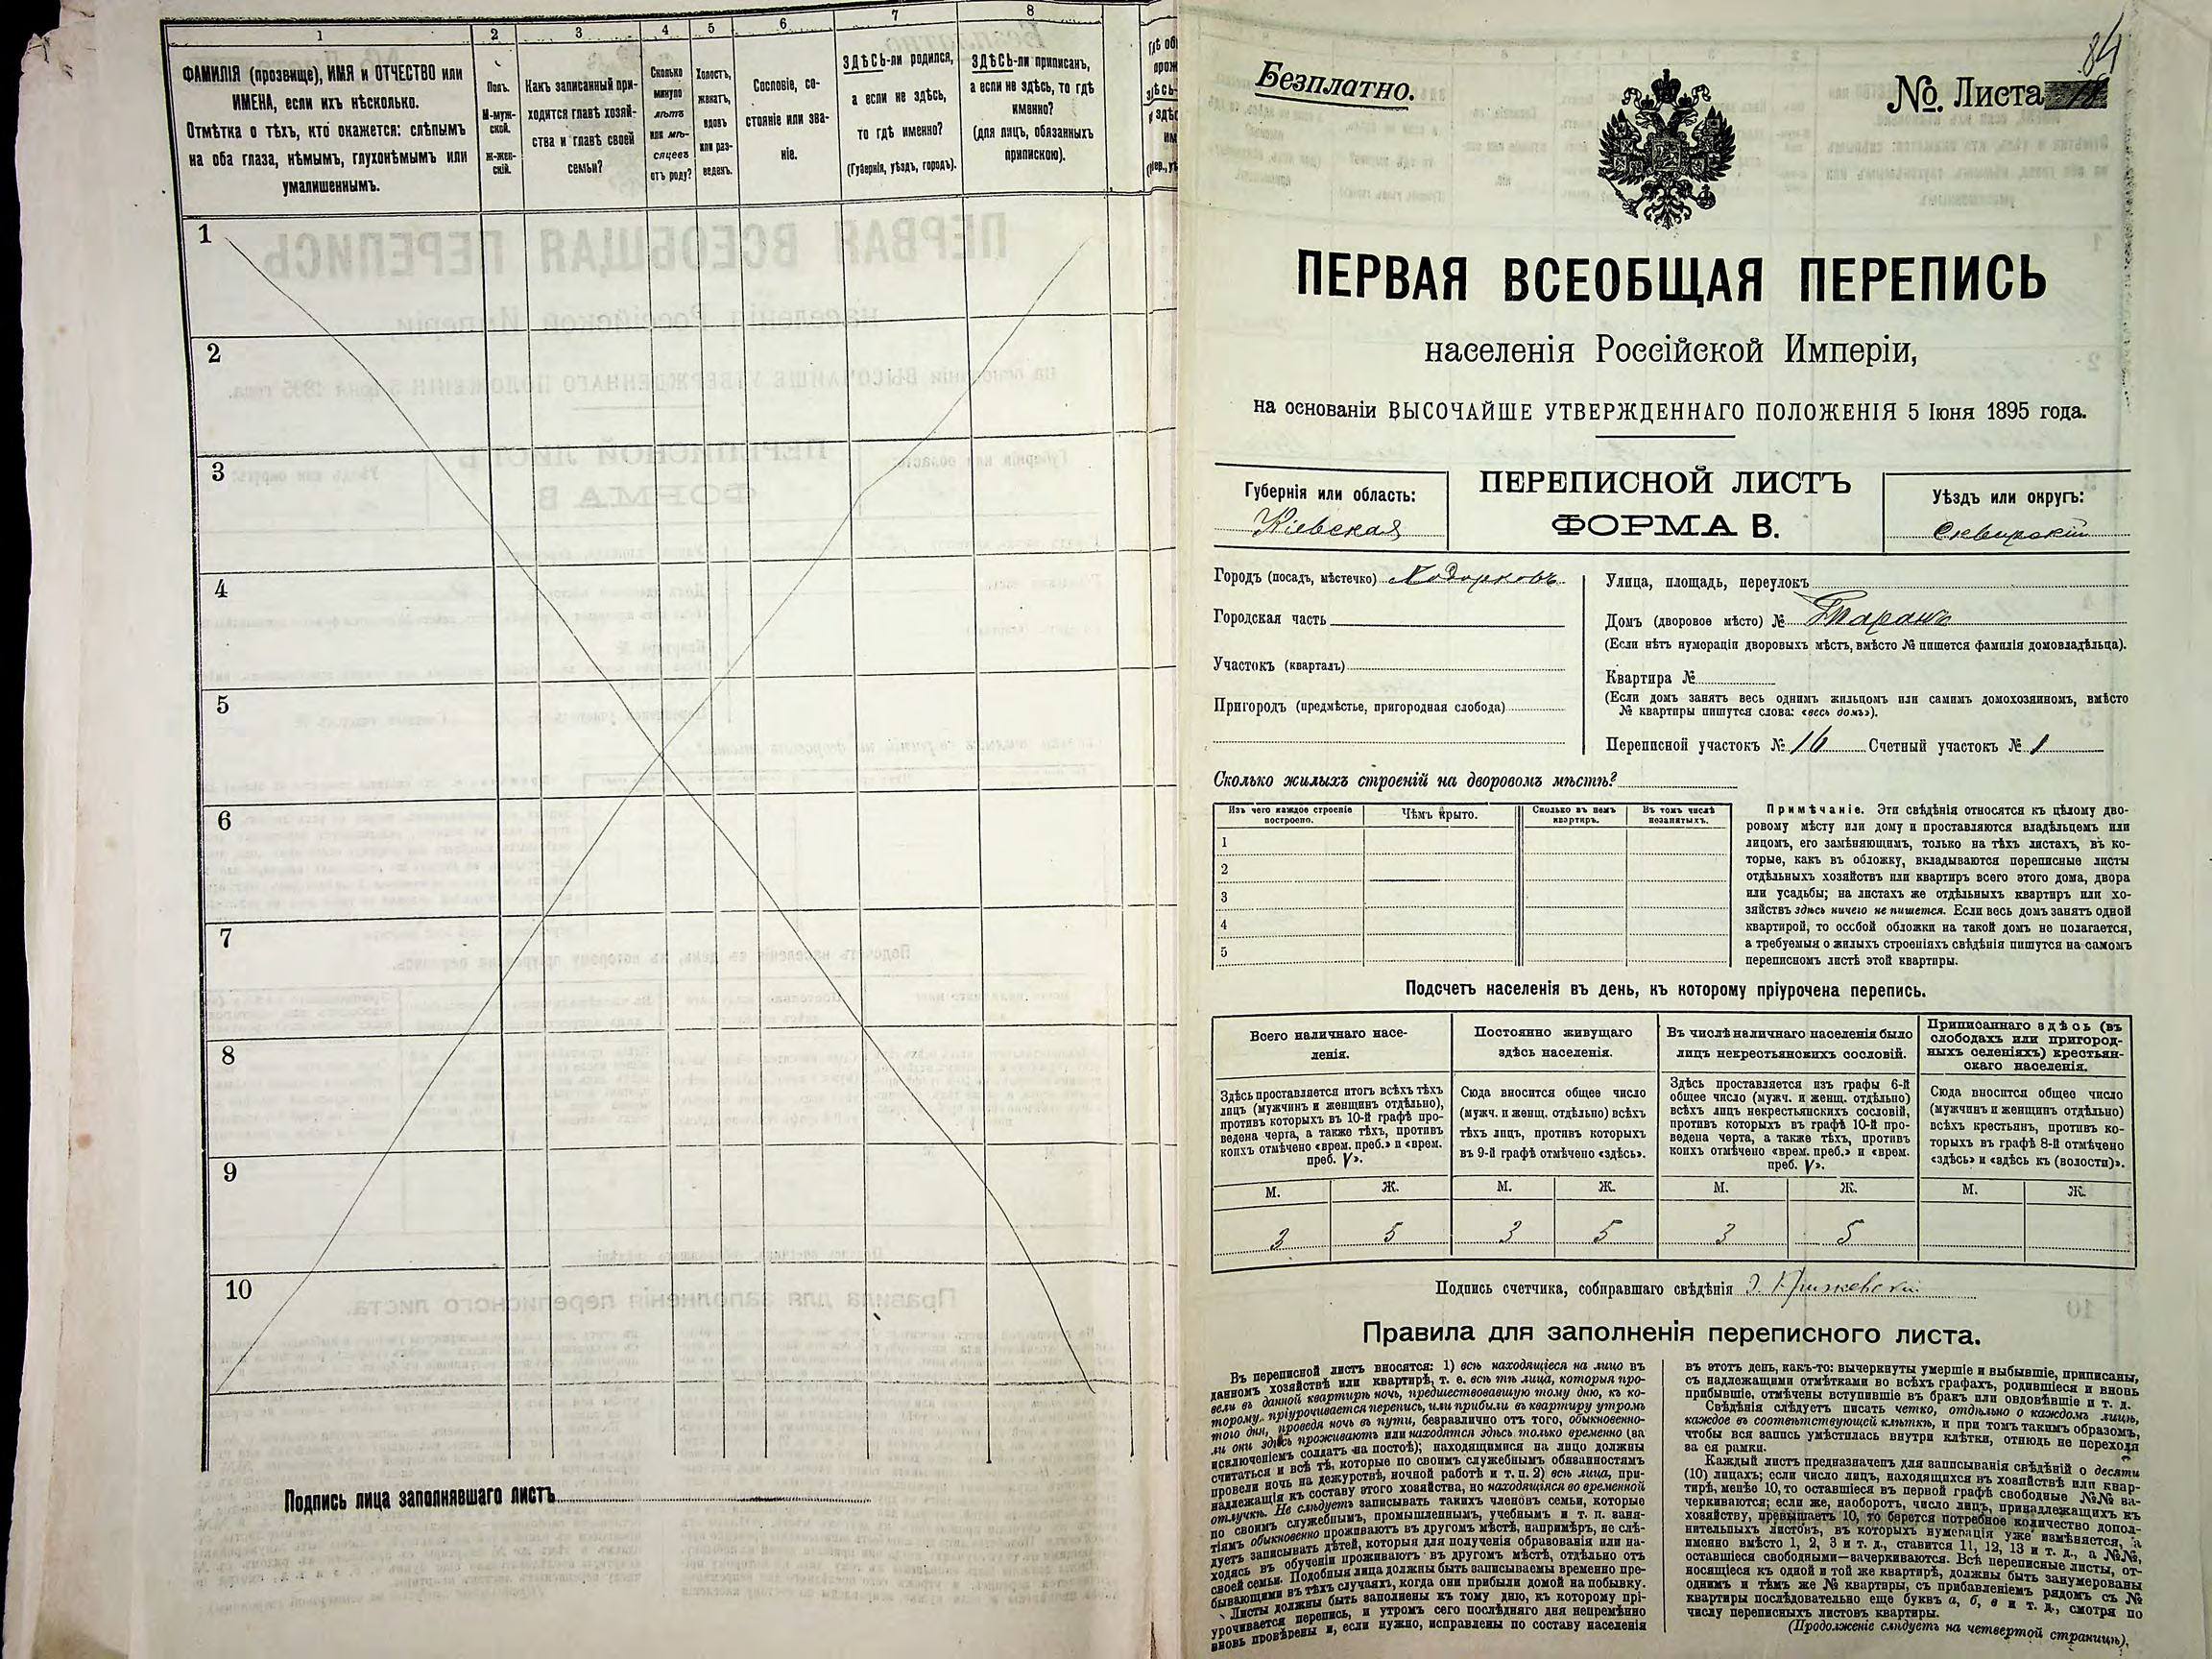 1
2
3
4
5
6
7
8
ФАМИЛІЯ (прозвище), ИМЯ и ОТЧЕСТВО или
ИМЕНА, если ихъ нѣсколько.
Отмѣтка о тѣхъ, кто окажется: слѣпымъ
на оба глаза, нѣмымъ, глухонѣмымъ или
умалишеннымъ.
Полъ.
М-муж-
ской.
Ж-жен-
скій.
Какъ записанный при-
ходится главѣ хозяй-
ства и главѣ своей
семьи?
Сколько
минуло
лѣтъ
или мѣ-
сяцевъ
отъ роду?
Холостъ,
женатъ,
вдовъ
или раз-
веденъ.
Сословіе, со-
стояніе или зва-
ніе.
ЗДѢСЬ-ли родился,
а если не здѣсь,
то гдѣ именно?
(Губернія, уѣздъ, городъ).
ЗДѢСЬ-ли приписанъ,
а если не здѣсь, то гдѣ
именно?
(для лицъ, обязанныхъ
припискою).
1
2
3
4
5
6
7
8
9
10
Подпись лица заполнявшаго листъ
84
Безплатно.
№ Листа
ПЕРВАЯ ВСЕОБЩАЯ ПЕРЕПИСЬ
населенія Россійской Имперіи,
на основаніи ВЫСОЧАЙШЕ УТВЕРЖДЕННАГО ПОЛОЖЕНІЯ 5 Іюня 1895 года.
Губернія или область:
Кіевская
ПЕРЕПИСНОЙ ЛИСТЪ
ФОРМА В.
Уѣздъ или округъ:
Сквирскій
Городъ (посадъ, мѣстечко) Ходорковъ
Городская часть
Участокъ (кварталъ)
Пригородъ (предмѣстье, пригородная слобода)
Улица, площадь, переулокъ
Домъ (дворовое мѣсто) № Таранъ
(Если нѣтъ нумераціи дворовыхъ мѣстъ, вмѣсто № пишется фамилія домовладѣльца).
Квартира №
(Если домъ занятъ весь однимъ жильцомъ или самимъ домохозяиномъ, вмѣсто
№ квартиры пишутся слова: «весь домъ»).
Переписной участокъ № 16 Счетный участокъ № 1
Сколько жилыхъ строеній на дворовомъ мѣстѣ?
Изъ чего каждое строеніе
построено.
Чѣмъ крыто.
Сколько въ немъ
квартиръ.
Въ томъ числѣ
незанятыхъ.
1
2
3
4
5
Примѣчаніе. Эти свѣдѣнія относятся къ цѣлому дво-
ровому мѣсту или дому и проставляются владѣльцемъ или
лицомъ, его замѣняющимъ, только на тѣхъ листахъ, въ ко-
торые, какъ въ обложку, вкладываются переписные листы
отдѣльныхъ хозяйствъ или квартиръ всего этого дома, двора
или усадьбы; на листахъ же отдѣльныхъ квартиръ или хо-
зяйствъ здѣсь ничего не пишется. Если весь домъ занятъ одной
квартирой, то особой обложки на такой домъ не полагается,
а требуемыя о жилыхъ строеніяхъ свѣдѣнія пишутся на самомъ
переписномъ листѣ этой квартиры.
Подсчетъ населенія въ день, къ которому пріурочена перепись.
Всего наличнаго насе-
ленія.
Здѣсь проставляется итогъ всѣхъ тѣхъ
лицъ (мужчинъ и женщинъ отдѣльно),
противъ которыхъ въ 10-й графѣ про-
ведена черта, а также тѣхъ, противъ
коихъ отмѣчено «врем. преб.» и «врем.
преб. V».
Постоянно живущаго
здѣсь населенія.
Сюда вносится общее число
(мужч. и женщ. отдѣльно) всѣхъ
тѣхъ лицъ, противъ которыхъ
въ 9-й графѣ отмѣчено «здѣсь».
Въ числѣ наличнаго населенія было
лицъ некрестьянскихъ сословій.
Здѣсь проставляется изъ графы 6-й
общее число (мужч. и женщ. отдѣльно)
всѣхъ лицъ некрестьянскихъ сословій,
противъ которыхъ въ графѣ 10-й про-
ведена черта, а также тѣхъ, противъ
коихъ отмѣчено «врем. преб.» и «врем.
преб. V».
Приписаннаго здѣсь (въ
слободахъ или пригород-
ныхъ селеніяхъ) крестьян-
скаго населенія.
Сюда вносится общее число
(мужчинъ и женщинъ отдѣльно)
всѣхъ крестьянъ, противъ ко-
торыхъ въ графѣ 8-й отмѣчено
«здѣсь» и «здѣсь къ (волости)».
М. Ж. М. Ж. М. Ж. М. Ж.
3 5 3 5 3 5
Подпись счетчика, собиравшаго свѣдѣнія
Правила для заполненія переписного листа.
Въ переписной листъ вносятся: 1) всѣ находящіеся на лицо въ
данномъ хозяйствѣ или квартирѣ, т. е. всѣ тѣ лица, которыя про-
вели въ данной квартирѣ ночь, предшествовавшую тому дню, къ ко-
торому пріурочивается перепись, или прибыли въ квартиру утромъ
того дня, проведя ночь въ пути, безразлично отъ того, обыкновенно-
ли они здѣсь проживаютъ или находятся здѣсь только временно (за
исключеніемъ солдатъ на постоѣ); находящимися на лицо должны
считаться и всѣ тѣ, которые по своимъ служебнымъ обязанностямъ
провели ночь на дежурствѣ, ночной работѣ и т. п. 2) всѣ лица, при-
надлежащія къ составу этого хозяйства, но находящіяся во временной
отлучкѣ. Не слѣдуетъ записывать такихъ членовъ семьи, которые
по своимъ служебнымъ, промышленнымъ, учебнымъ и т. п. заня-
тіямъ обыкновенно проживаютъ въ другомъ мѣстѣ, напримѣръ, не слѣ-
дуетъ записывать дѣтей, которыя для полученія образованія или на-
ходясь въ обученіи проживаютъ въ другомъ мѣстѣ, отдѣльно отъ
своей семьи. Подобныя лица должны быть записываемы временно пре-
бывающими въ тѣхъ случаяхъ, когда они прибыли домой на побывку.
Листы должны быть заполнены къ тому дню, къ которому прі-
урочивается перепись, и утромъ сего послѣдняго дня непремѣнно
вновь провѣрены и, если нужно, исправлены по составу населенія
въ этотъ день, какъ-то: вычеркнуты умершіе и выбывшіе, приписаны,
съ надлежащими отмѣтками во всѣхъ графахъ, родившіеся и вновь
прибывшіе, отмѣчены вступившіе въ бракъ или овдовѣвшіе и т. д.
Свѣдѣнія слѣдуетъ писать четко, отдѣльно о каждомъ лицѣ,
каждое въ соотвѣтствующей клѣткѣ, и при томъ такимъ образомъ,
чтобы вся запись умѣстилась внутри клѣтки, отнюдь не переходя
за ея рамки.
Каждый листъ предназначенъ для записыванія свѣдѣній о десяти
(10) лицахъ; если число лицъ, находящихся въ хозяйствѣ или квар-
тирѣ, менѣе 10, то оставшіеся въ первой графѣ свободные №№ за-
черкиваются; если же, наоборотъ, число лицъ, принадлежащихъ къ
хозяйству, превышаетъ 10, то берется потребное количество допол-
нительныхъ листовъ, въ которыхъ нумерація уже измѣняется, а
именно вмѣсто 1, 2, 3 и т. д., ставится 11, 12, 13 и т. д., а №№,
оставшіеся свободными—зачеркиваются. Всѣ переписные листы, от-
носящіеся къ одной и той же квартирѣ, должны быть занумерованы
однимъ и тѣмъ же № квартиры, съ прибавленіемъ рядомъ съ №
квартиры послѣдовательно еще буквъ а, б, в и т. д., смотря по
числу переписныхъ листовъ квартиры.
(Продолженіе слѣдуетъ на четвертой страницѣ).